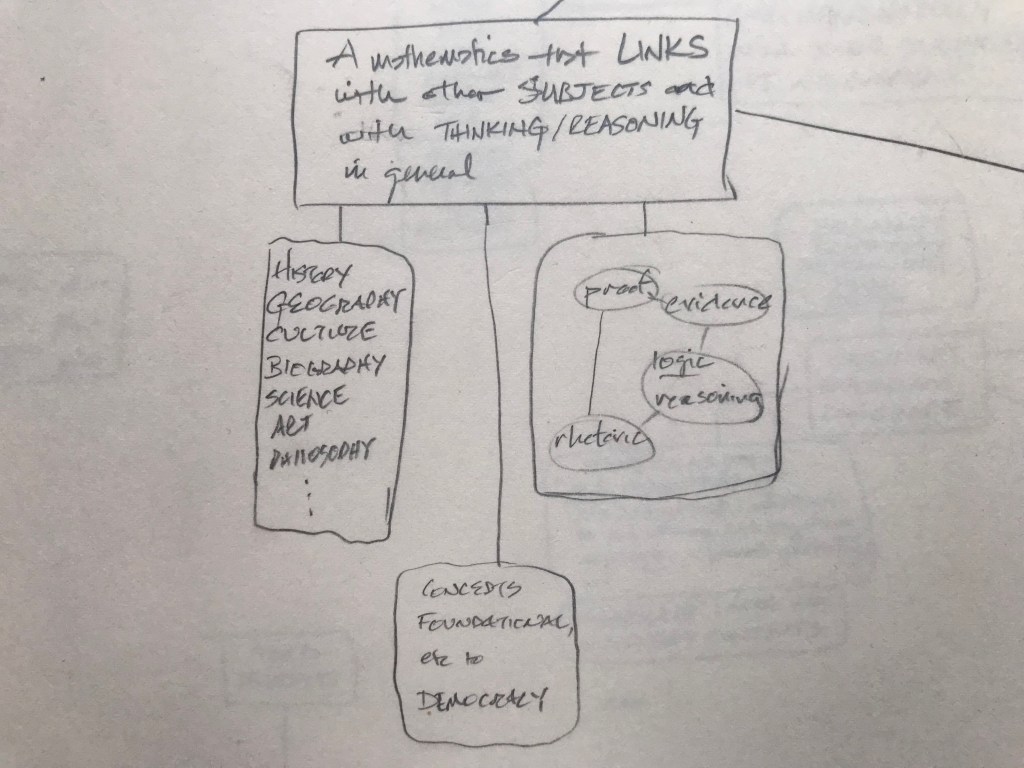 A mathematics that LINKS
with other SUBJECTS and
with THINKING/REASONING
in general
HISTORY
GEOGRAPHY
CULTURE
BIOGRAPHY
SCIENCE
ART
PHILOSOPHY
proof
evidence
logic
reasoning
rhetoric
CONCEPTS
FOUNDATIONAL,
etc to
DEMOCRACY